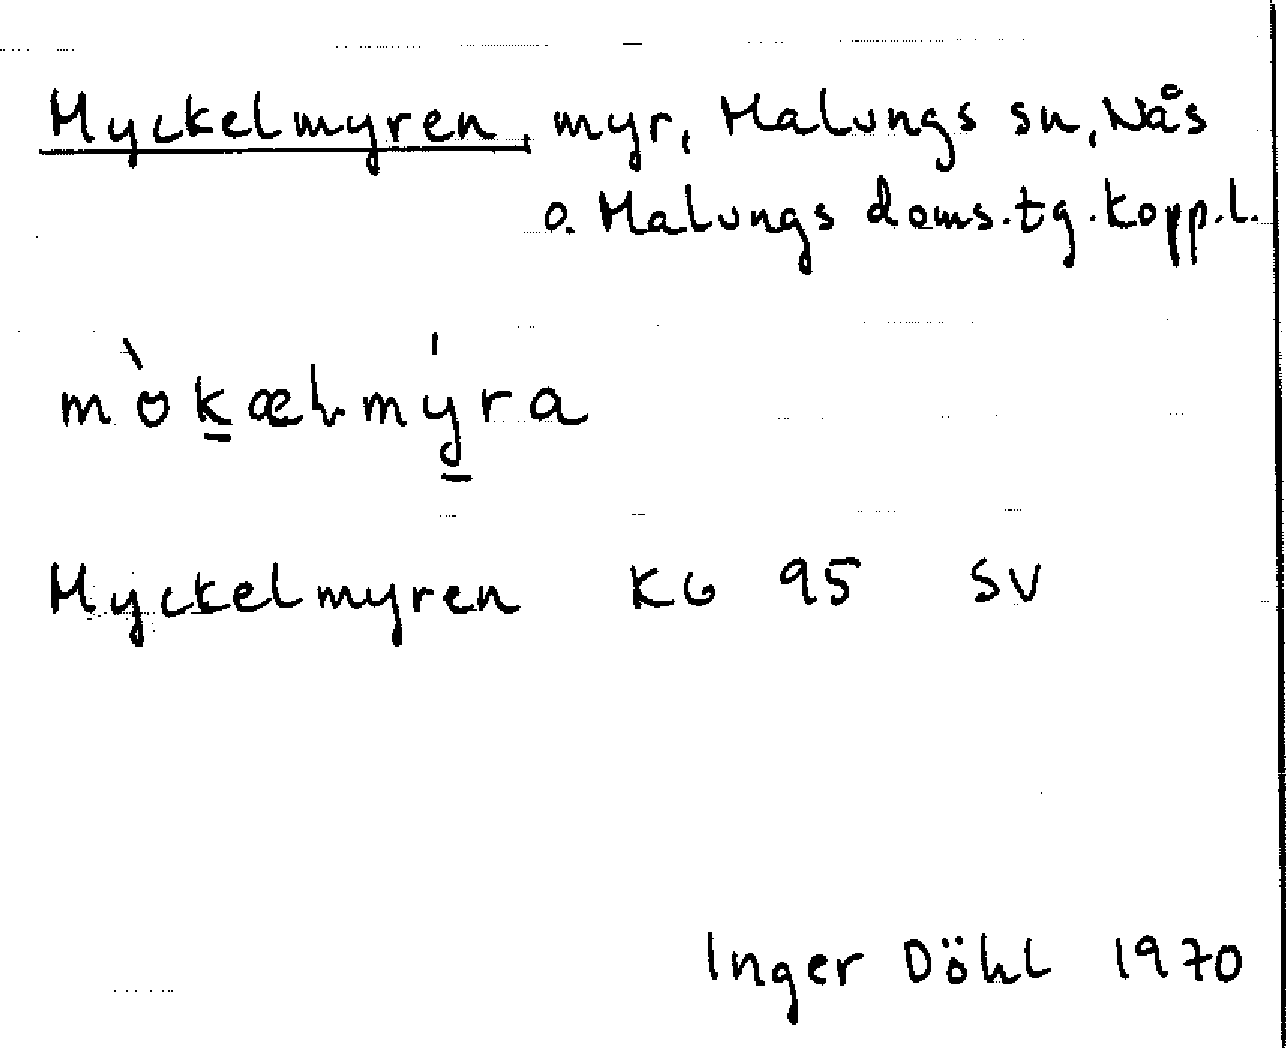 Myckelmyren, myr, Malungs sn, Nås
o. Malungs doms.tg. Kopp.l.
mòkælmýra
Myckelmyren KG 95 SV
Inger Döhl 1970